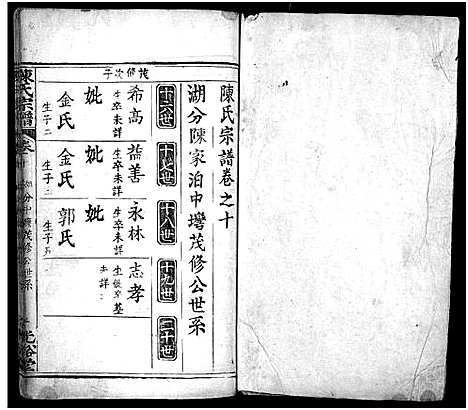 陳氏宗譜卷之十
湖分陳家泊中墻茂修公世系
十六世
十七世
十八世
十九世
二十世
茂修次子
希高
生卒未詳
妣
金氏
生子二
益善
生卒未詳
妣
金氏
生子二
永林
生卒未詳
妣
郭氏
生子
志孝
生卒葬未詳
陳氏宗譜
光裕堂